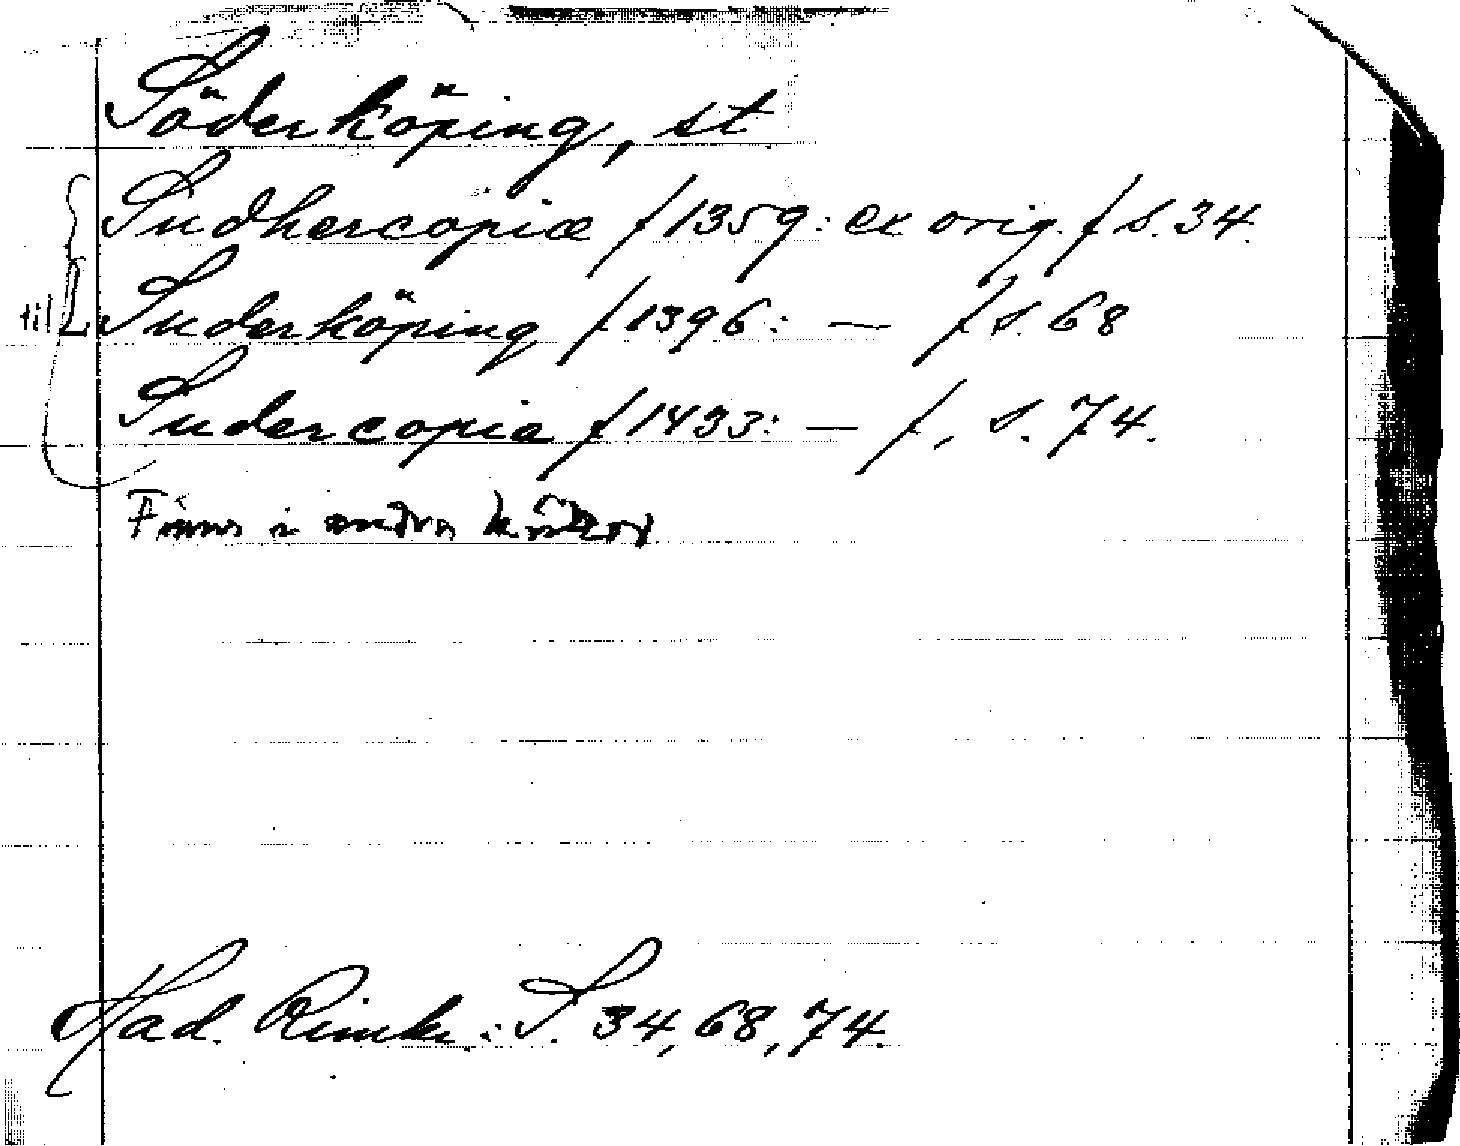 Söderköping, st
Sudhercopiæ f 1359: ex orig. f s. 34.
till Suderköping f 1396: — f s. 68
Sudercopia f 1433: — f, s. 74.
Finns i andra
Had. Rimkr.: S. 34, 68, 74.